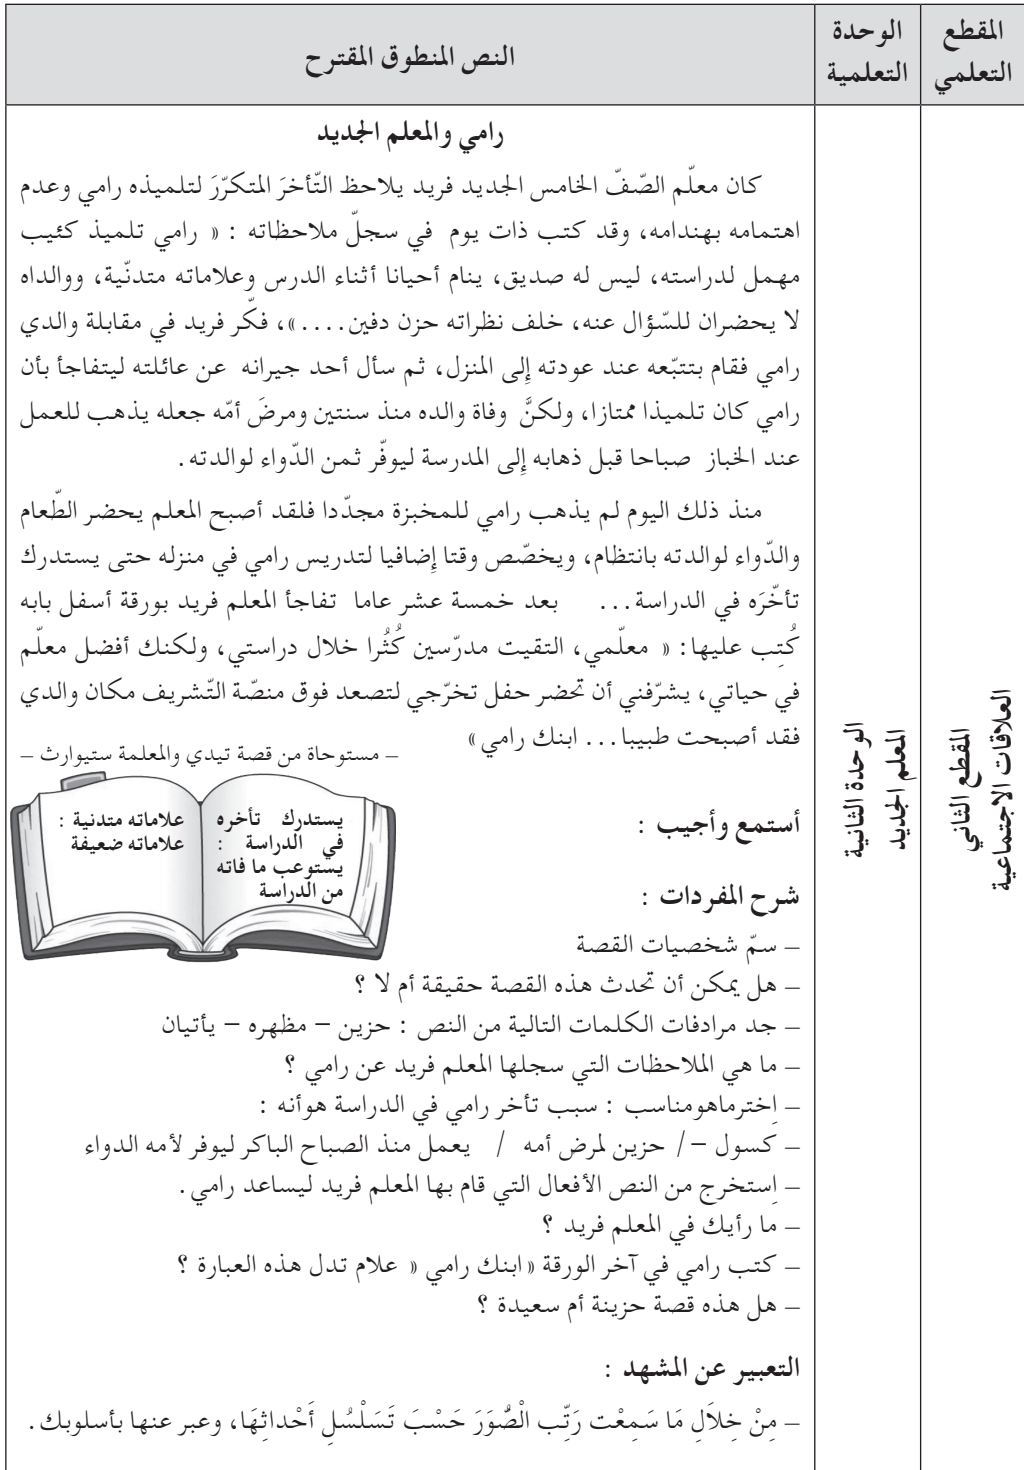 المقطع
التعلمي
الوحدة
التعلمية
النص المنطوق المقترح
المقطع الثاني
العلاقات الاجتماعية
الوحدة الثانية
المعلم الجديد
رامي والمعلم الجديد
كان معلّم الصّفّ الخامس الجديد فريد يلاحظ التّأخرَ المتكرّرَ لتلميذه رامي وعدم
اهتمامه بهندامه، وقد كتب ذات يوم في سجلّ ملاحظاته : « رامي تلميذ كئيب
مهمل لدراسته، ليس له صديق، ينام أحيانا أثناء الدرس وعلاماته متدنّية، ووالداه
لا يحضران للسّؤال عنه، خلف نظراته حزن دفين....»، فكّر فريد في مقابلة والدي
رامي فقام بتتبّعه عند عودته إِلى المنزل، ثم سأل أحد جيرانه عن عائلته ليتفاجأ بأن
رامي كان تلميذا ممتازا، ولكنَّ وفاة والده منذ سنتين ومرضَ أمّه جعله يذهب للعمل
عند الخباز صباحا قبل ذهابه إِلى المدرسة ليوفّر ثمن الدّواء لوالدته.
منذ ذلك اليوم لم يذهب رامي للمخبزة مجدّدا فلقد أصبح المعلم يحضر الطّعام
والدّواء لوالدته بانتظام، ويخصّص وقتا إِضافيا لتدريس رامي في منزله حتى يستدرك
تأخّرَه في الدراسة... بعد خمسة عشر عاما تفاجأ المعلم فريد بورقة أسفل بابه
كُتِب عليها: « معلّمي، التقيت مدرّسين كُثُرا خلال دراستي، ولكنك أفضل معلّم
في حياتي، يشرّفني أن تحضر حفل تخرّجي لتصعد فوق منصّة التّشريف مكان والدي
فقد أصبحت طبيبا... ابنك رامي»
– مستوحاة من قصة تيدي والمعلمة ستيوارث –
يستدرك تأخره
في الدراسة :
يستوعب ما فاته
من الدراسة
علاماته متدنية :
علاماته ضعيفة
أستمع وأجيب :
شرح المفردات :
– سمّ شخصيات القصة
– هل يمكن أن تحدث هذه القصة حقيقة أم لا ؟
– جد مرادفات الكلمات التالية من النص : حزين – مظهره – يأتيان
– ما هي الملاحظات التي سجلها المعلم فريد عن رامي ؟
– اِخترماهومناسب : سبب تأخر رامي في الدراسة هوأنه :
– كسول –/ حزين لمرض أمه / يعمل منذ الصباح الباكر ليوفر لأمه الدواء
– اِستخرج من النص الأفعال التي قام بها المعلم فريد ليساعد رامي.
– ما رأيك في المعلم فريد ؟
– كتب رامي في آخر الورقة «ابنك رامي « علام تدل هذه العبارة ؟
– هل هذه قصة حزينة أم سعيدة ؟
التعبير عن المشهد :
– مِنْ خِلاَلِ مَا سَمِعْت رَتِّب الْصُّوَرَ حَسْبَ تَسَلْسُلِ أَحْداثِهَا، وعبر عنها بأسلوبك.